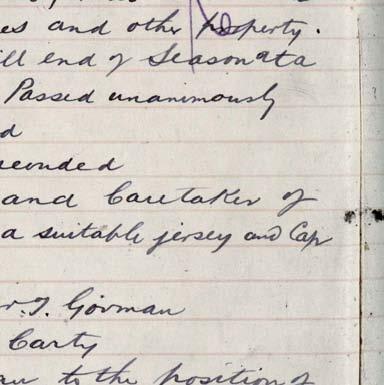 es and other property.
ill end of Season at a
Passed unanimously
d
seconded
and Caretaker of
a suitable jersey and Cap
r. J. Gorman
Carty
to the position of